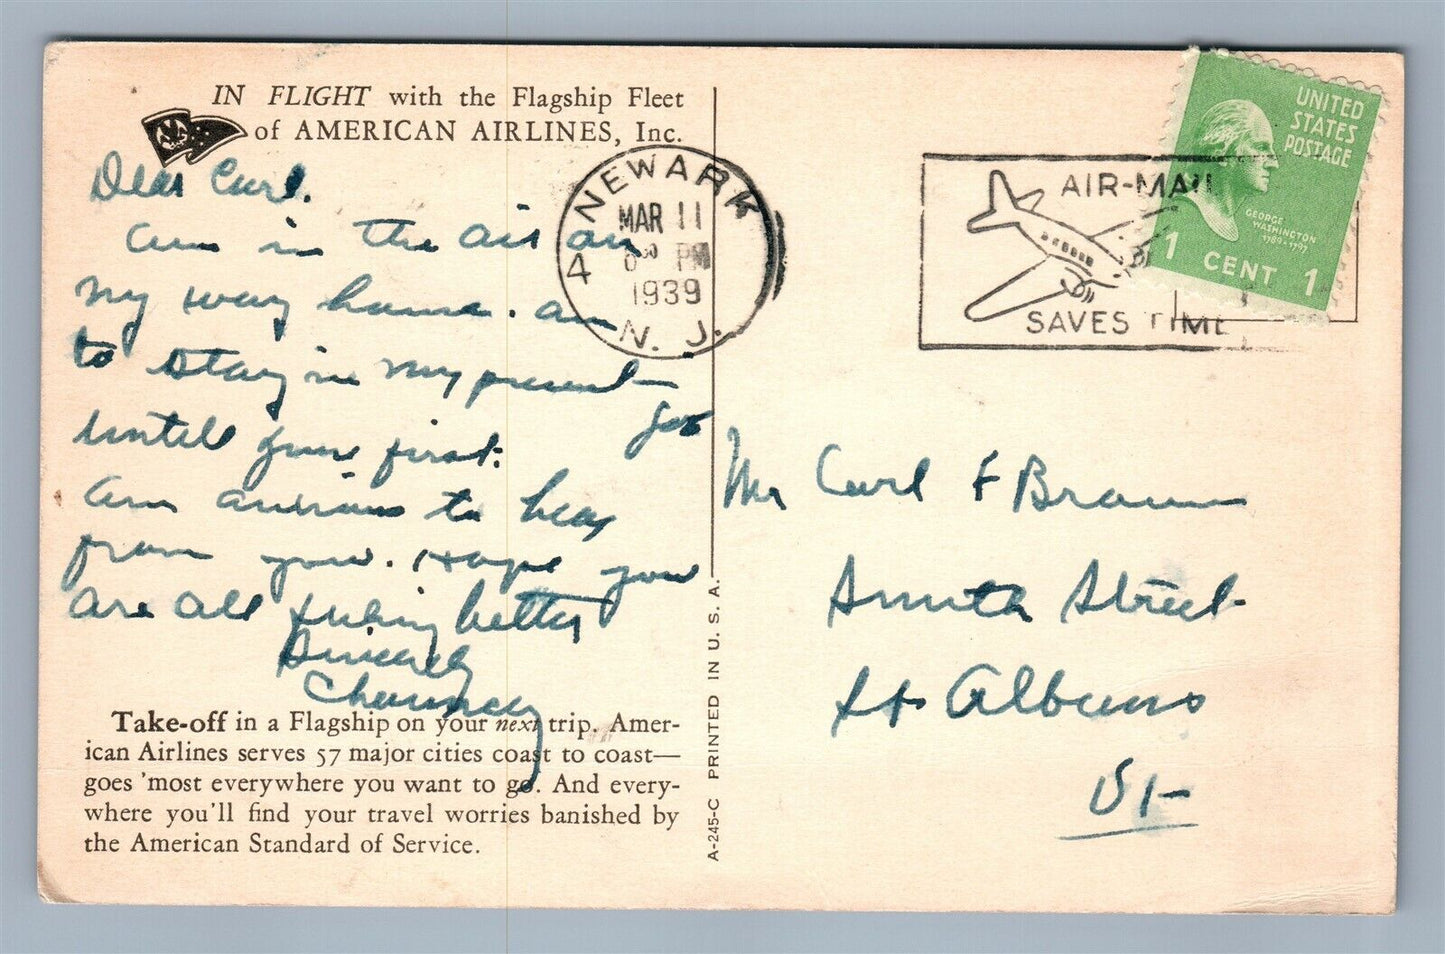 IN FLIGHT with the Flagship Fleet
of AMERICAN AIRLINES, Inc.
Dear Carl.
Am in the air on
my way home. am
to stay in my present
job
untill June first.
Am anxious to hear
from you. Hope you
are all feeling better
Sincerely
Chauncey
Take-off in a Flagship on your next trip. Amer-
ican Airlines serves 57 major cities coast to coast—
goes 'most everywhere you want to go. And every-
where you'll find your travel worries banished by
the American Standard of Service.
A-245-C PRINTED IN U. S. A.
NEWARK
MAR 11
PM
1939
N. J.
AIR-MAIL
SAVES TIME
UNITED
STATES
POSTAGE
GEORGE
WASHINGTON
1789-1797
1 CENT 1
Mr Carl F Brown
Smith Street
St Albans
Vt